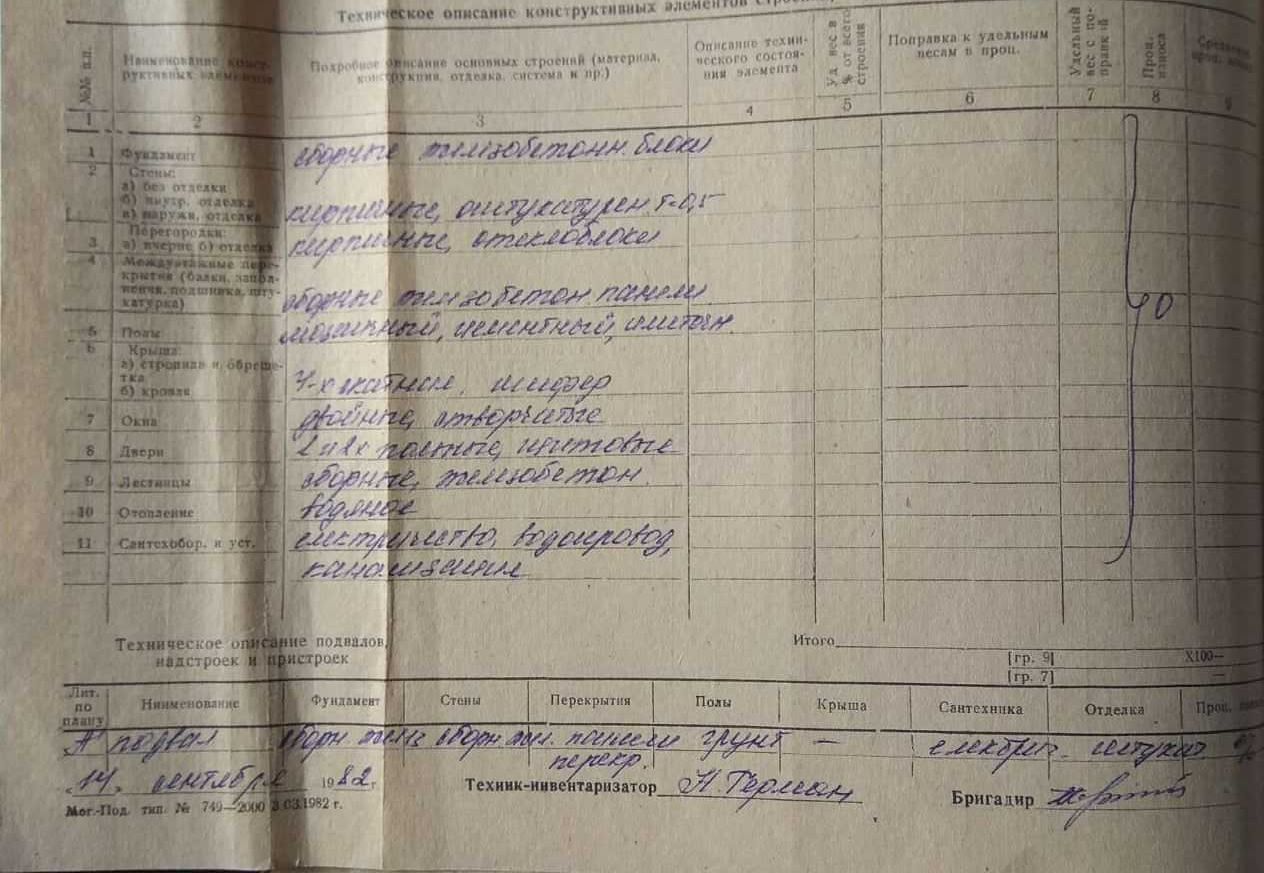 Техническое описание конструктивных элементов
№№ п.п.
Наименование конст-
руктивных элементов
Подробное описание основных строений (материал,
конструкция, отделка, система и пр.)
Описание техни-
ческого состоя-
ния элемента
Уд вес в
% от всего
строения
Поправка к удельным
весам в проц.
Удельный
вес с по-
правкой
Проц.
износа
1 2 3 4 5 6 7 8 9
1 Фундамент сборные железобетонн. блоки
2 Стены:
а) без отделки
б) внутр. отделка
в) наружн. отделка кирпичные, оштукатурен. т-0,5
Перегородки:
3 а) вчерне б) отделка кирпичные, стеклоблоки
4 Междуэтажные пере-
крытия (балки, запол-
нения, подшивка, шту-
катурка) сборные железобетон. панели
40
5 Полы мозаичный, цементный,
6 Крыша:
а) стропила и обреше-
тка
б) кровля 4-х скатная, шифер
7 Окна двойные, створчатые
8 Двери 1 и 2х полные, щитовые
9 Лестницы сборные, железобетон.
10 Отопление водяное
11 Сантехобор. и уст. електричество, водопровод,
канализация
Техническое описание подвалов,
надстроек и пристроек
Итого
[гр. 9] Х100—
[гр. 7] —
Лит.
по
плану
Наименование Фундамент Стены Перекрытия Полы Крыша Сантехника Отделка Проц.
"А" подвал сборн. жел. сборн. жел. панели грунт — електрич. штукат.
перекр.
"14" сентября 1982 г. Техник-инвентаризатор Бригадир
Мог.-Под. тип. № 749—2000 3 03.1982 г.